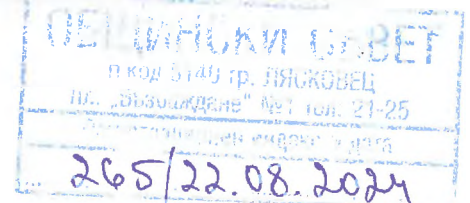 ОБЩИНСКИ СЪВЕТ
п.код 5140 гр. ЛЯСКОВЕЦ
пл. „Възраждане" №1 тел. 21-25
индекс и дата
265/22.08.2024